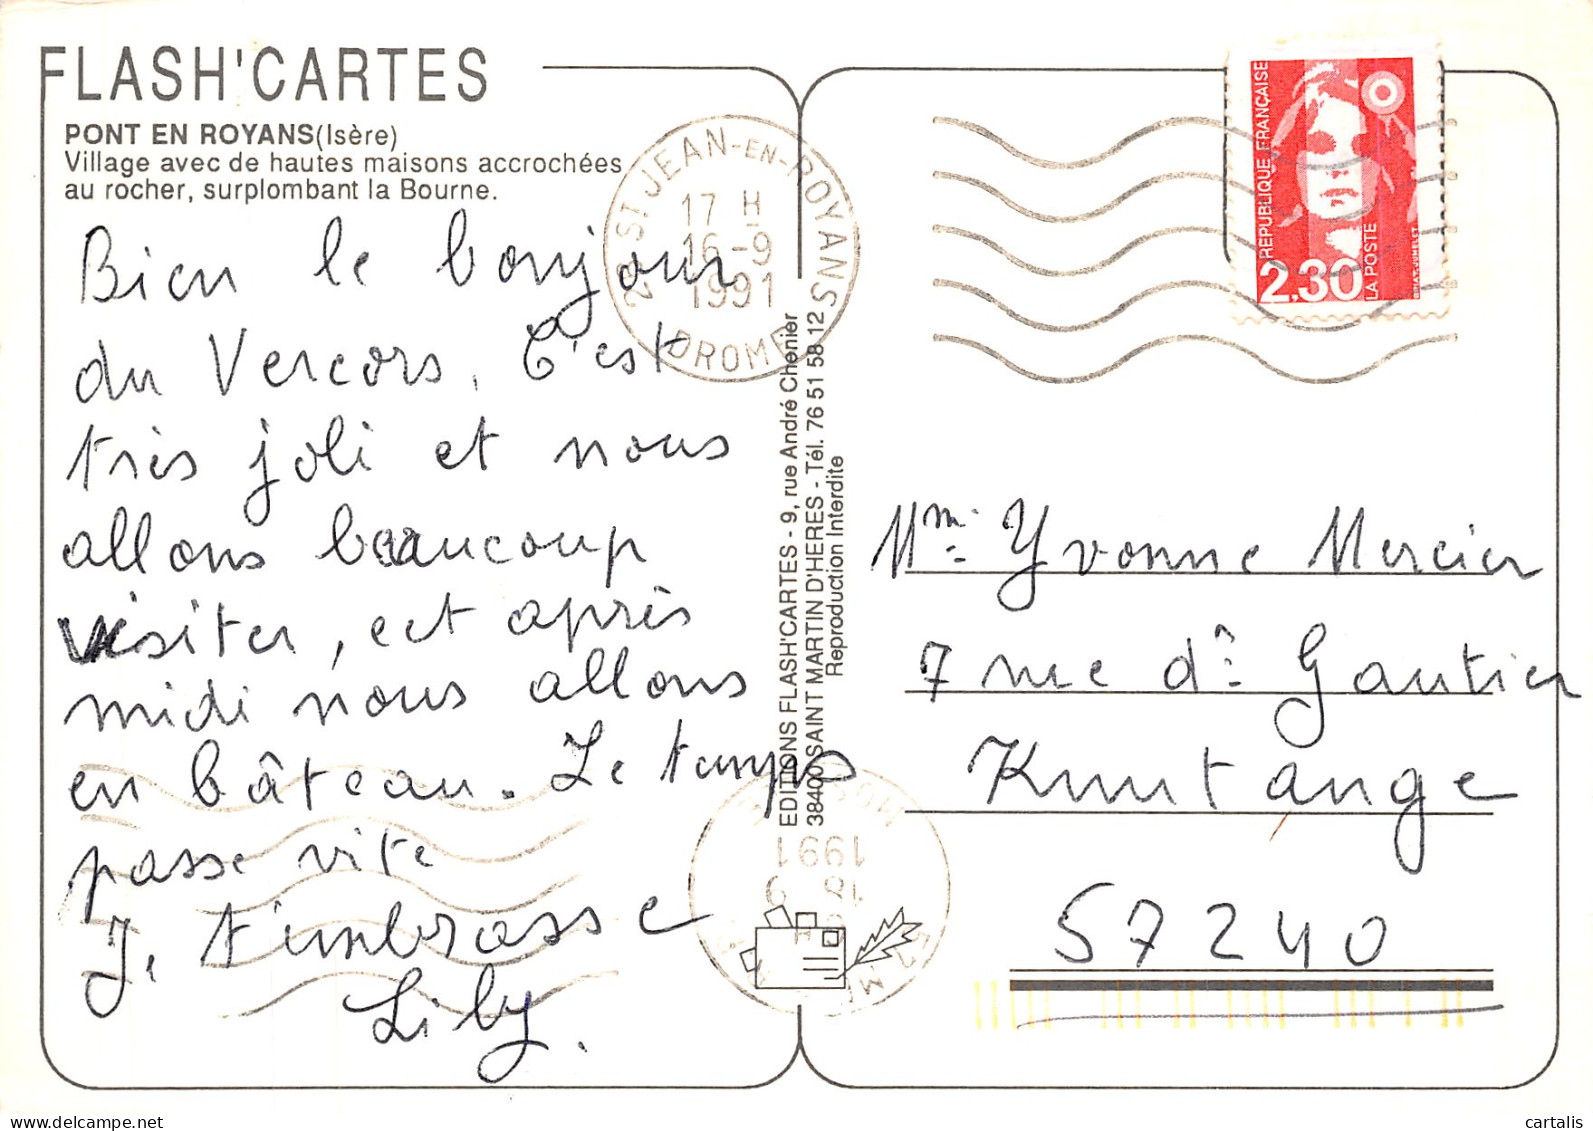 FLASH'CARTES
PONT EN ROYANS (Isère)
Village avec de hautes maisons accrochées
au rocher, surplombant la Bourne.
Bien le bonjour
du Vercors. C'est
très joli et nous
allons beaucoup
visiter, cet après
midi nous allons
en bâteau. Le temps
passe vite
J. t'embrasse
Lily.
26 ST JEAN-EN-ROYANS
17 H
16-9
1991
DROME
EDITIONS FLASH'CARTES - 9, rue André Chenier
38400 SAINT MARTIN D'HERES - Tél. 76 51 58 12
Reproduction Interdite
1991
REPUBLIQUE FRANÇAISE
2,30
LA POSTE
Mme Yvonne Mercier
7 rue dr Gautier
Knutange
57240
cartalis